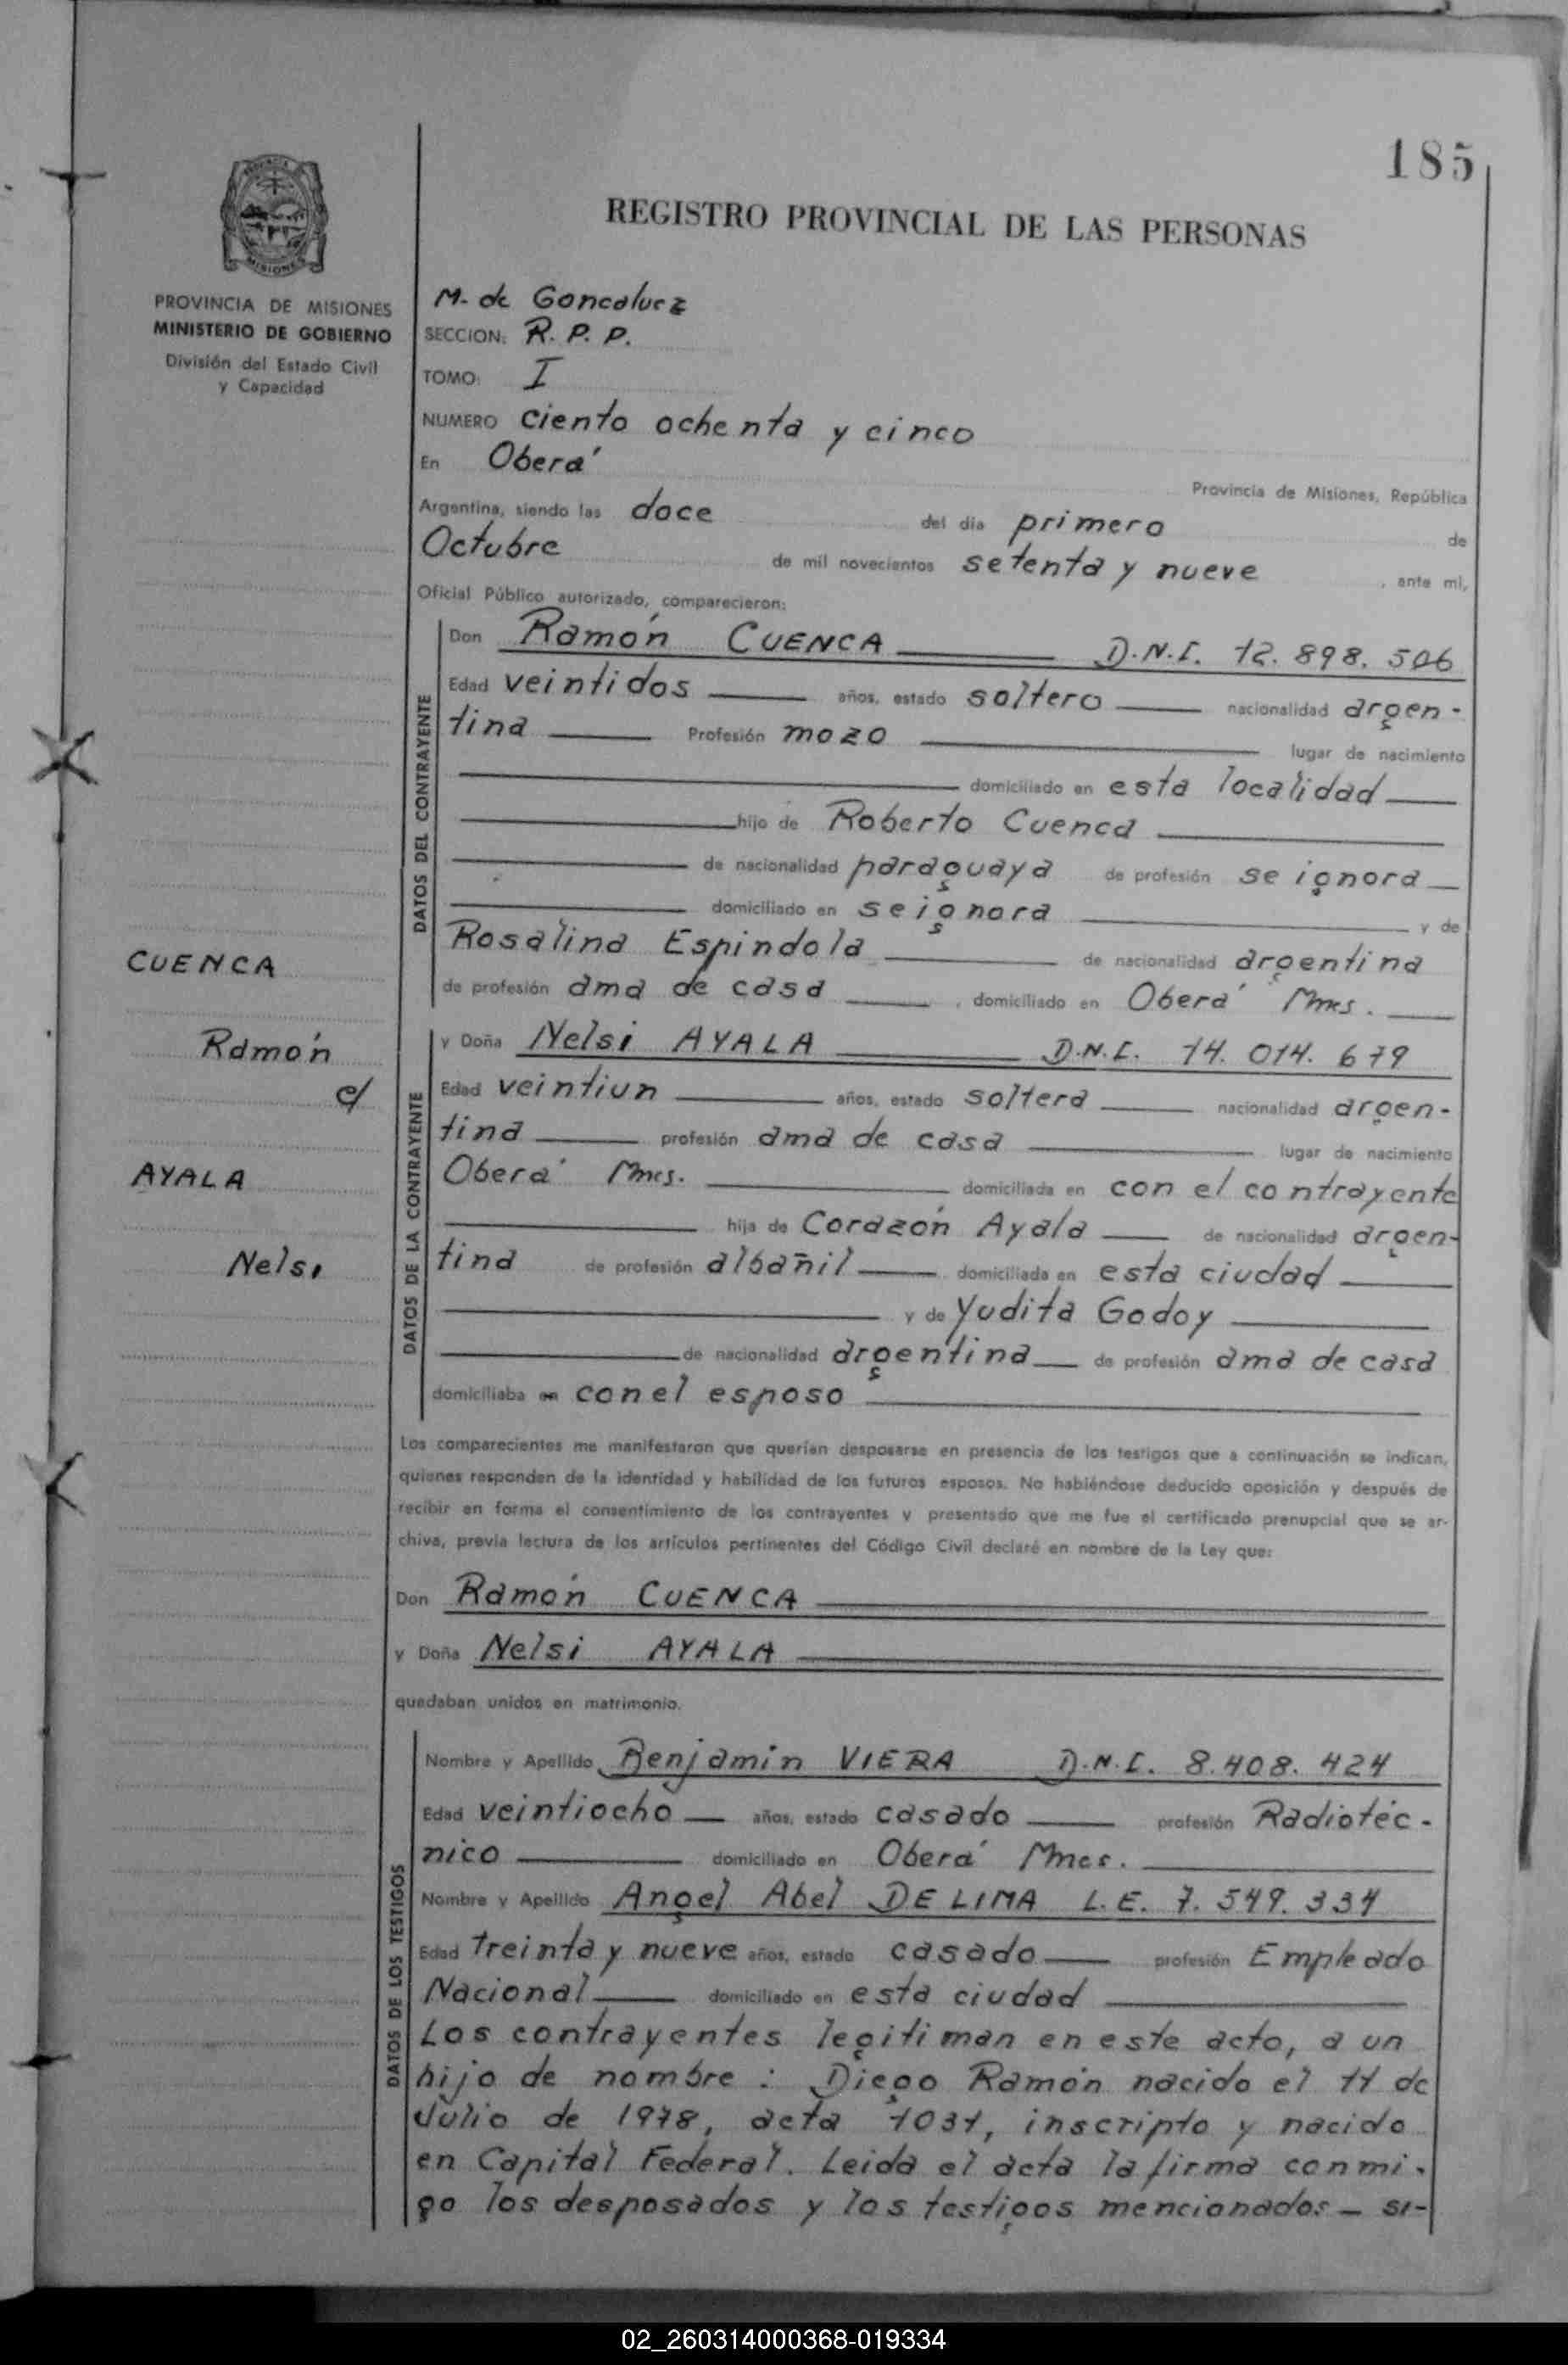 185
REGISTRO PROVINCIAL DE LAS PERSONAS
MISIONES
PROVINCIA DE MISIONES
MINISTERIO DE GOBIERNO
División del Estado Civil
y Capacidad
M. de Goncalvez
SECCION: R. P. P.
TOMO: I
NUMERO ciento ochenta y cinco
En Oberá
Provincia de Misiones, República
Argentina, siendo las doce del día primero de
Octubre de mil novecientos setenta y nueve, ante mí,
Oficial Público autorizado, comparecieron:
DATOS DEL CONTRAYENTE
Don Ramón CUENCA D.N.I. 12.898.506
Edad veintidos años, estado soltero nacionalidad argen-
tina Profesión mozo lugar de nacimiento
domiciliado en esta localidad
hijo de Roberto Cuenca
de nacionalidad paraguaya de profesión se ignora
domiciliado en se ignora y de
Rosalina Espindola de nacionalidad argentina
de profesión ama de casa, domiciliado en Oberá Mnes.
CUENCA
Ramón
c/
AYALA
Nelsi
DATOS DE LA CONTRAYENTE
y Doña Nelsi AYALA D.N.I. 14.014.679
Edad veintiun años, estado soltera nacionalidad argen-
tina profesión ama de casa lugar de nacimiento
Oberá Mnes. domiciliada en con el contrayente
hija de Corazón Ayala de nacionalidad argen-
tina de profesión albañil domiciliada en esta ciudad
y de Yudita Godoy
de nacionalidad argentina de profesión ama de casa
domiciliaba en con el esposo
Los comparecientes me manifestaron que querían desposarse en presencia de los testigos que a continuación se indican,
quienes responden de la identidad y habilidad de los futuros esposos. No habiéndose deducido oposición y después de
recibir en forma el consentimiento de los contrayentes y presentado que me fue el certificado prenupcial que se ar-
chiva, previa lectura de los artículos pertinentes del Código Civil declaré en nombre de la Ley que:
Don Ramón CUENCA
y Doña Nelsi AYALA
quedaban unidos en matrimonio.
DATOS DE LOS TESTIGOS
Nombre y Apellido Benjamin VIERA D.N.I. 8.408.424
Edad veintiocho años, estado casado profesión Radiotéc-
nico domiciliado en Oberá Mnes.
Nombre y Apellido Angel Abel DE LIMA L.E. 7.549.334
Edad treinta y nueve años, estado casado profesión Empleado
Nacional domiciliado en esta ciudad
Los contrayentes legitiman en este acto, a un
hijo de nombre : Diego Ramón nacido el 11 de
Julio de 1978, acta 1031, inscripto y nacido
en Capital Federal. Leida el acta la firma conmi-
go los desposados y los testigos mencionados - si-
02_260314000368-019334